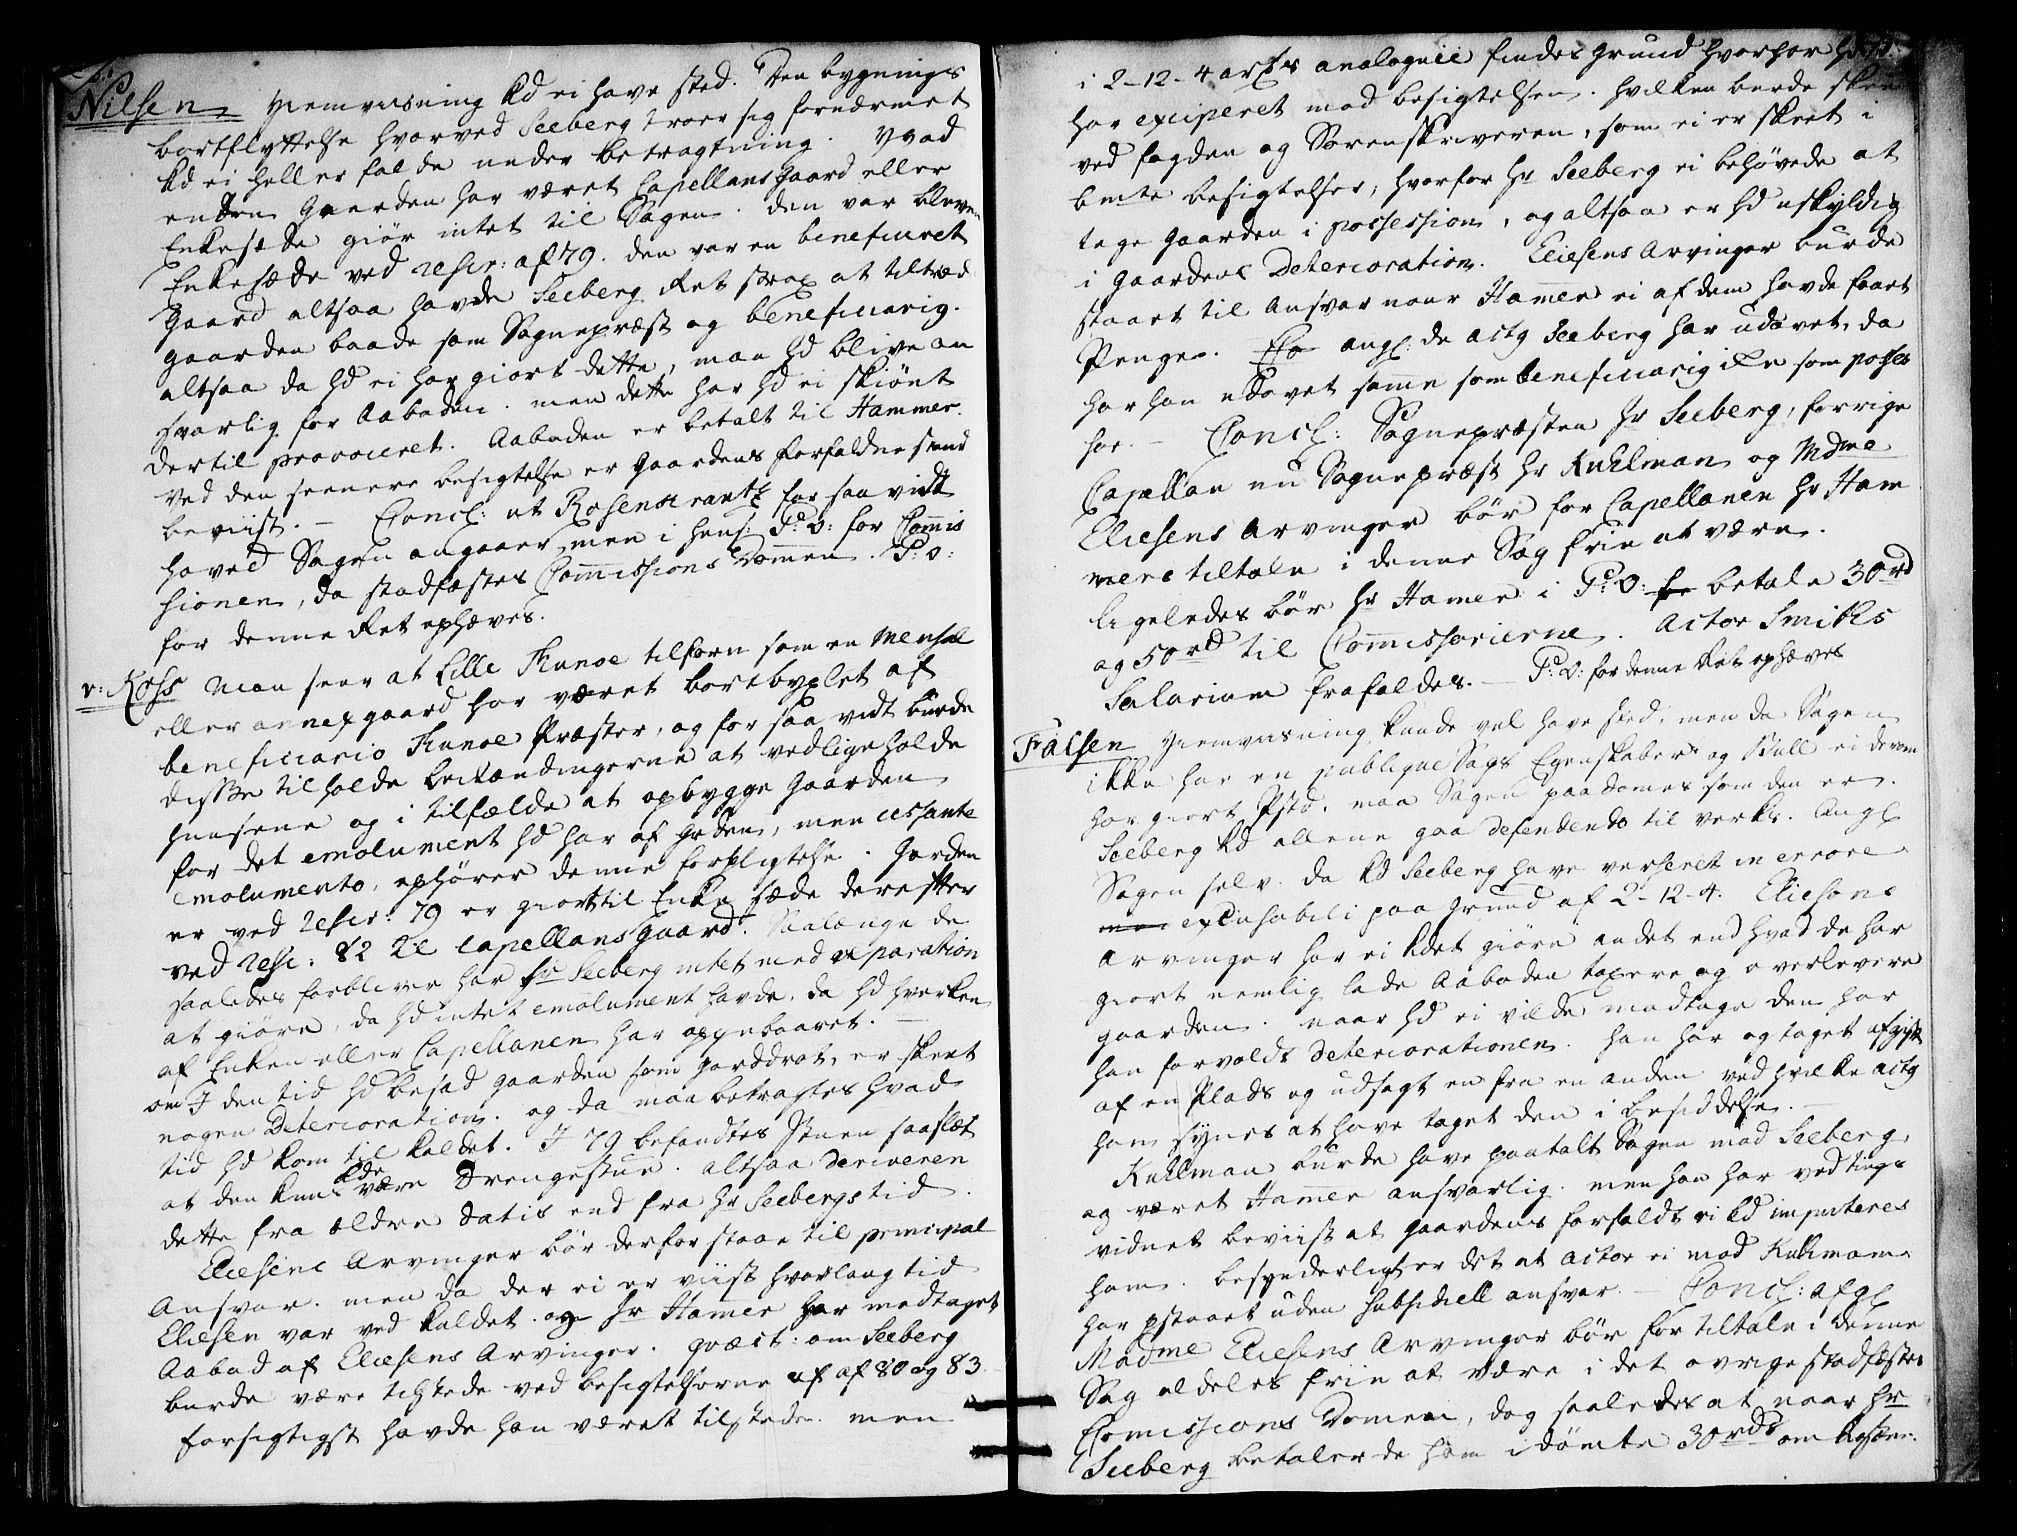 Nilsen Hiemviisning kd ei have sted. Den bygnings
bortflyttelse hvorved Seeberg troer sig fornærmet
kd ei heller falde under betragtning. Hvad
enten Gaarden har været Capellans Gaard eller
Enkesæde giør intet til Sagen. den var bleven
Enkesæde ved rescr: af 79. den var en beneficeret
Gaard altsaa havde Seeberg Ret strax at tiltræde
gaarden baade som Sognepræst og beneficiarig.
altsaa da hd ei har giort dette, maa hd blive an
svarlig for Aaboden. men dette har hd ei skiønt
dertil provoceret. Aaboden er betalt til Hammer.
Ved den seenere besigtelse er Gaardens forfaldne stand
beviist. - Concl: ut Rosencrantz for saa vidt
hoved Sagen angaaer, men i hens P: O: for Commis
sionen, da stadfæstes Commissions Dommen. P: O:
for denne Ret ophæves.
v: Koss Man seer at Lille Kunoe tilforn som en Mensal
eller annexgaard har været bortbyxlet af
beneficiario Kunoe Præster, og for saa vidt burde
disse tilholde beboerne at vedligeholde
huusene og i tilfælde at opbygge Gaarden
for det emolument hd har af Grden, men cessante
emolumento, ophører denne forpligtelse. Gorden
er ved rescr: 79 er giort til Enke sæde derefter
ved resc: 82 til Capellans gaard. Saalænge de
saaledes forbliver har hr Seeberg intet med reparation
at giøre, da hd intet emolument havde, da hd hverken
af Enken eller Capellanen har oppebaaret. -
om I den tid hd besad gaarden som Gorddrot, er skeet
nogen Deterioration. og da maa betragtes hvad
tid hd kom til kaldet. I 79 befandtes Stuen saa slet
at den kun kde være Drengestue. altsaa deriveren
dette fra ældre Datis end fra hr Seebergs tid.
Eliesens Arvinger bør derfor staae til principal
Ansvar. men da der ei er viist hvorlang tid
Eliesen var ved kaldet. og hr Hamer har modtaget
Aabod af Eliesens Arvinger. qvæst: om Seeberg
burde være tilstede ved besigtelserne af af 80 og 83
forsigtigst havde han været tilstede. men
i 2-12-4 arts analogie findes Grund hvorfor hd
har exciperet mod besigtelsen. hvilken burde skee
ved fogden og Sorenskriveren, som ei er skeet i
bemte besigtelser, hvorfor hr Seeberg ei behøvede at
tage Gaarden i possession, og altsaa er hd uskyldig
i Gaardens Deterioration. Eliesens Arvinger burde
staaet til Ansvar naar Hamer ei af dem havde faaet
Penge. angl: de actg Seeberg har udøvet, da
har han udøvet samme som beneficiarig ikke som posses
sor. - Concl: Sognepræsten hr Seeberg, forrige
Capellan nu Sognepræst hr Kuhlman og Mdme
Eliesens Arvinger bør for Capellanen hr Ham
mers tiltale i denne Sag frie at være.
ligeledes bør hr Hamer i P: O: betale 30 rd
og 50 rd til Commissarierne. Actor Smiths
Salarium frafaldes. - P: O: for denne Ret ophæves
Falsen Hiemviisning kunde vel have sted, men da Sagen
ikke har en publique Sags Egenskaber og Skull ei derom
har giort Pstd. maa Sagen paadømes som den er.
Seeberg kd allene gaa defendendo til verks. Angl
Sagen selv. da kd Seeberg have verseret in errore
excusabili paa Grund af 2-12-4. Eliesens
Arvinger har ei kdet giøre andet end hvad de har
giort nemlig lade Aaboden taxere og overlevere
gaarden. naar hd ei vilde modtage den har
han forvoldt Deteriorationen. han har og taget afgift
af en Plads og udsagt en fra en anden ved hvilke actg
han synes at have taget den i besiddelse. -
Kuhlman burde have paatalt Sagen mod Seeberg,
og været Hamer ansvarlig. men han har ved tings
vidnet beviist at Gaardens forfald ei kd imputeres
ham. besynderligt er det at actor ei mod Kuhlman
har pstaaet uden subsidiell ansvar. - Concl: afgl
Madme Eliesens Arvinger bør for tiltale i denne
Sag aldeles frie at være i det øvrige stadfæstes
Comissions Domen, dog saaledes at naar hr
Seeberg betaler de ham idømte 30 rds om